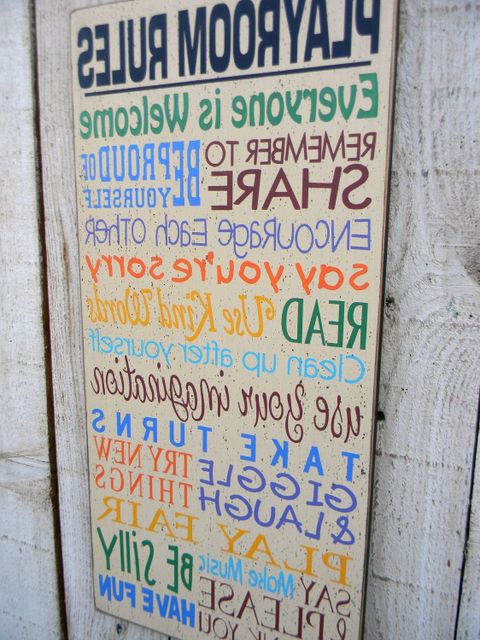 PLAYROOM RULES
Everyone is Welcome
REMEMBER TO SHARE
BE PROUD OF YOURSELF
ENCOURAGE EACH OTHER
say you're sorry
READ Use Kind Words
Clean up after yourself
use your imagination
TAKE TURNS
GIGGLE & LAUGH
TRY NEW THINGS
PLAY FAIR
SAY PLEASE
& THANK YOU
Make Music
BE SILLY
HAVE FUN